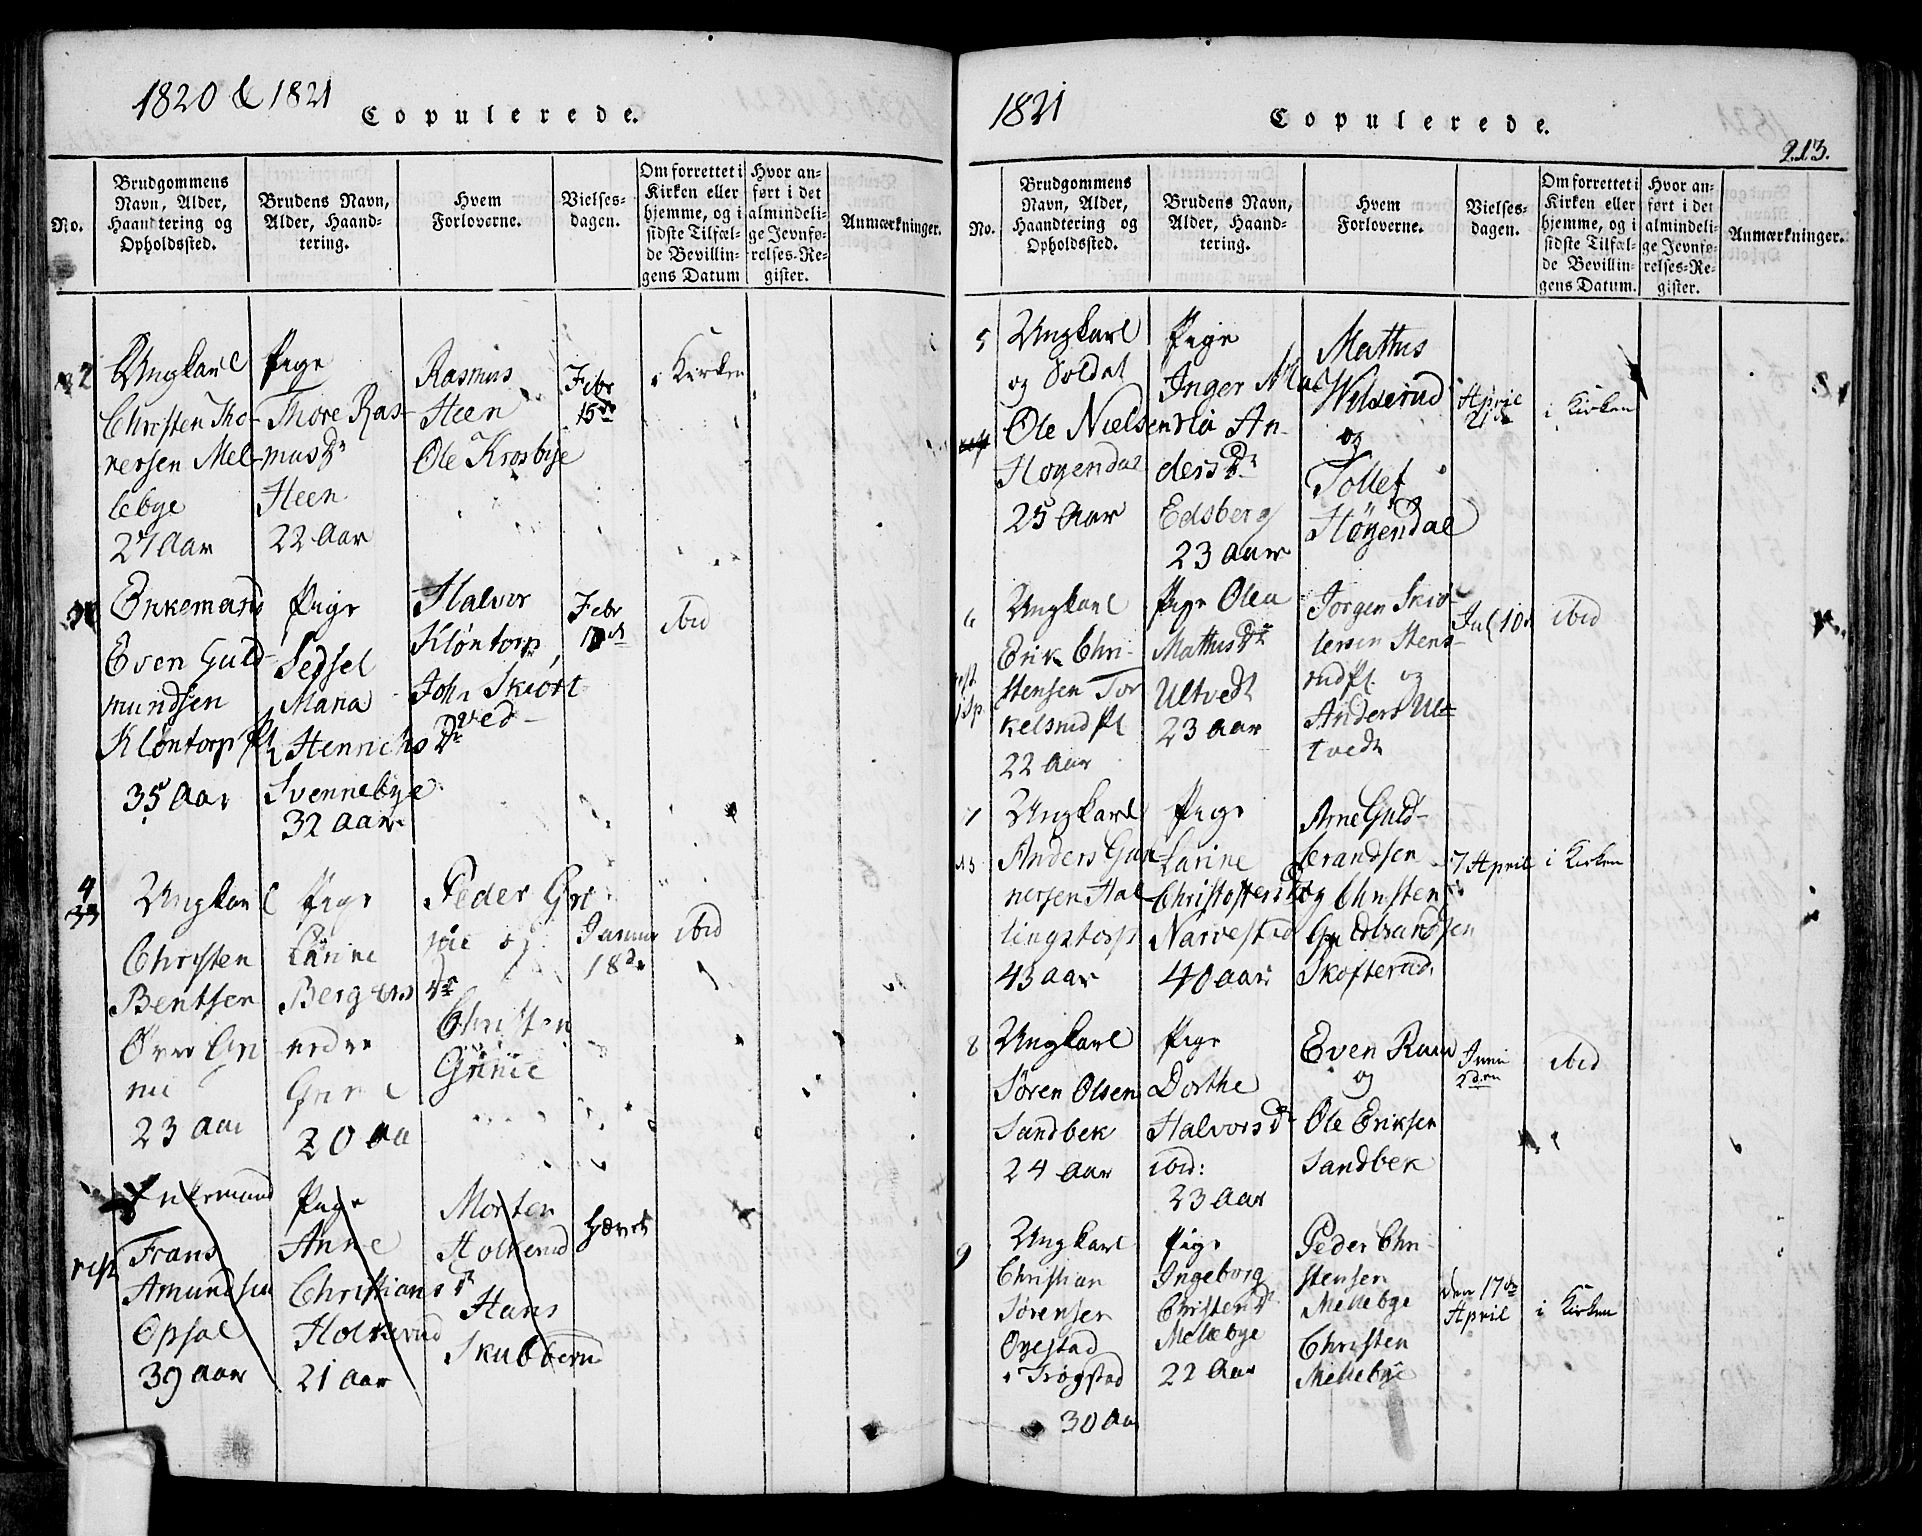 1820 & 1821
Copulerede.
No.
Brudgommens
Navn, Alder,
Haandtering og
Opholdssted.
Brudens Navn,
Alder, Haand-
tering.
Hvem
Forloverne.
Vielses-
dagen.
Om forrettet i
Kirken eller
hjemme, og i
sidste Tilfæl-
de Bevillin-
gens Datum
Hvor an-
ført i det
almindeli-
ge Jevnfø-
relses-Re-
gister.
Anmærkninger.
2
Ungkarl
Christen Tho-
rersen Mel-
lebye
27 Aar
Pige
Thore Ras-
musdr
Heen
22 Aar
Rasmus
Heen
Ole Krosbye
Febr
15de
i Kirken
Enkemand
Even Guld-
mundsen
Kløntorp Pl
35 Aar
Pige
Sedsel
Maria
Henrichsdr
Svennebye
32 aar
Halvor
Kløntorp
John Skiørt
ved
Febr
ibid
4
Ungkarl
Christen
Bentsen
Øvre Gri
nie
23 aar
Pige
Larine
Bergersdr
nedre
Grinie
20 Aa
Peder Gri
nie og
Christen
Grinie
Januar
18de
ibid
Enkemand
Frans
Amundsen
Opsal
39 aar
Pige
Anne
Christiansdr
Holkerud
21 aar
Morten
Holkerud
Hans
Skubberud
hævet
1821
Copulerede.
213.
No.
Brudgommens
Navn, Alder,
Haandtering og
Opholdssted.
Brudens Navn,
Alder, Haand-
tering.
Hvem
Forloverne.
Vielses-
dagen.
Om forrettet i
Kirken eller
hjemme, og i
sidste Tilfæl-
de Bevillin-
gens Datum.
Hvor an-
ført i det
almindeli-
ge Jevnfø-
relses-Re-
gister.
Anmærkninger.
5
Ungkarl
og Soldat
Ole Nielsen
Høyendal
25 Aar
Pige
Inger Ma
ria An-
dersdr
Edsberg
23 aar
Mathis
Wilserud
og
Tollef
Høyendal
April
i Kirken
6
Ungkarl
Erik Chri-
stensen Tor
kelsrud Pl
22 Aar
Pige Olea
Mathisdr
Ultvedt
23 aar
Jørgen Skiø-
lersen Stens-
rud Pl. og
Anders Ul-
tvedt
Jul 10d
ibid
7
Ungkarl
Anders Gun-
nersen Hal-
lingstorp
43 aar
Pige
Larine
Christoffersdr
Narvestad
40 aar
Arne Guld-
brandsen
og Christen
Guldbrandsen
Skofterud.
7 April
i Kirken
8
Ungkarl
Søren Olsen
Sandbek
24 Aar
Pige
Dorthe
Halvorsdr
ibid:
23 Aar
Even Ruud
og
Ole Eriksen
Sandbek
Juni
2den
ibid
9
Ungkarl
Christian
Sørensen
Ovestad
i Trøgstad
30 Aar
Pige
Ingeborg
Christensdr
Mellebye
22 Aar
Peder Chri-
stensen
Mellebye
Christen
Mellebye
den 17de
April
i Kirken